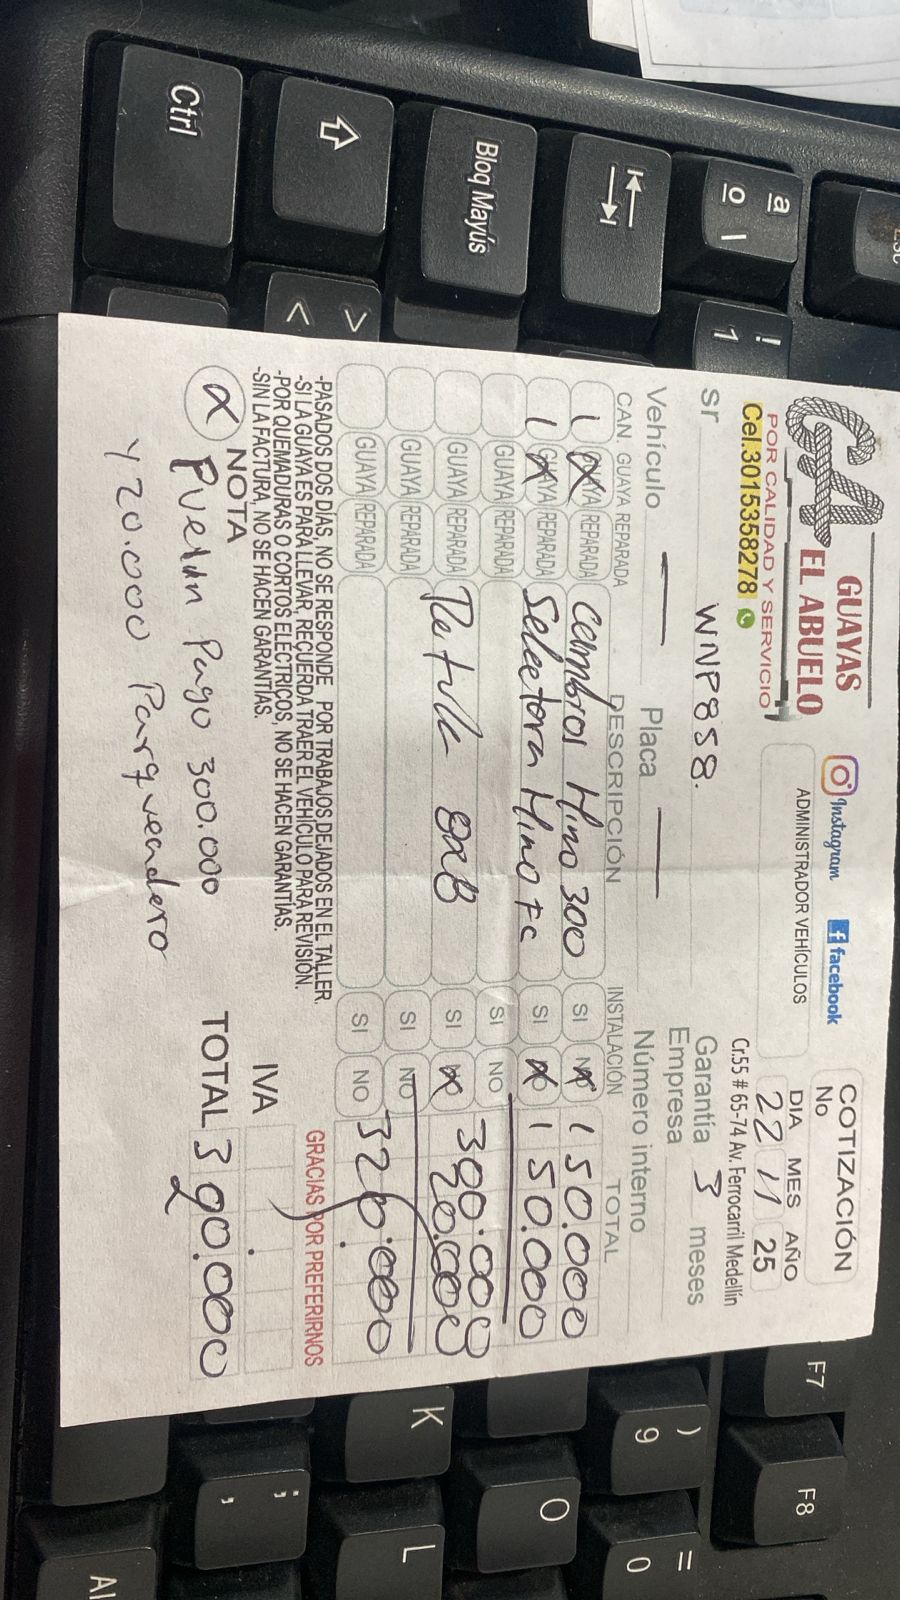 GUAYAS
EL ABUELO
GA
POR CALIDAD Y SERVICIO
Cel.3015358278
Instagram
facebook
ADMINISTRADOR VEHÍCULOS
COTIZACIÓN
No
DIA MES AÑO
22 11 25
Cr.55 # 65-74 Av. Ferrocarril Medellín
sr WNP858.
Garantía 3 meses
Empresa
Vehículo — Placa — Número interno
CAN. GUAYA REPARADA DESCRIPCIÓN INSTALACIÓN TOTAL
1 REPARADA cambios Hino 300 SI NO 150.000
1 GUAYA REPARADA Selectora Hino Fc SI NO 150.000
GUAYA REPARADA SI NO 300.000
GUAYA REPARADA SI 20.000
GUAYA REPARADA SI NO
GUAYA REPARADA SI NO 320.000
-PASADOS DOS DÍAS, NO SE RESPONDE POR TRABAJOS DEJADOS EN EL TALLER.
-SI LA GUAYA ES PARA LLEVAR, RECUERDA TRAER EL VEHÍCULO PARA REVISIÓN.
-POR QUEMADURAS O CORTOS ELÉCTRICOS, NO SE HACEN GARANTÍAS.
-SIN LA FACTURA, NO SE HACEN GARANTÍAS.
GRACIAS POR PREFERIRNOS
IVA
NOTA
TOTAL 320.000
Pago 300.000
Y 20.000 Parqueadero
Esc
ª
º \
!
1
Bloq Mayús
>
<
Ctrl
F7
F8
)
9
=
0
O
K
L
;
,